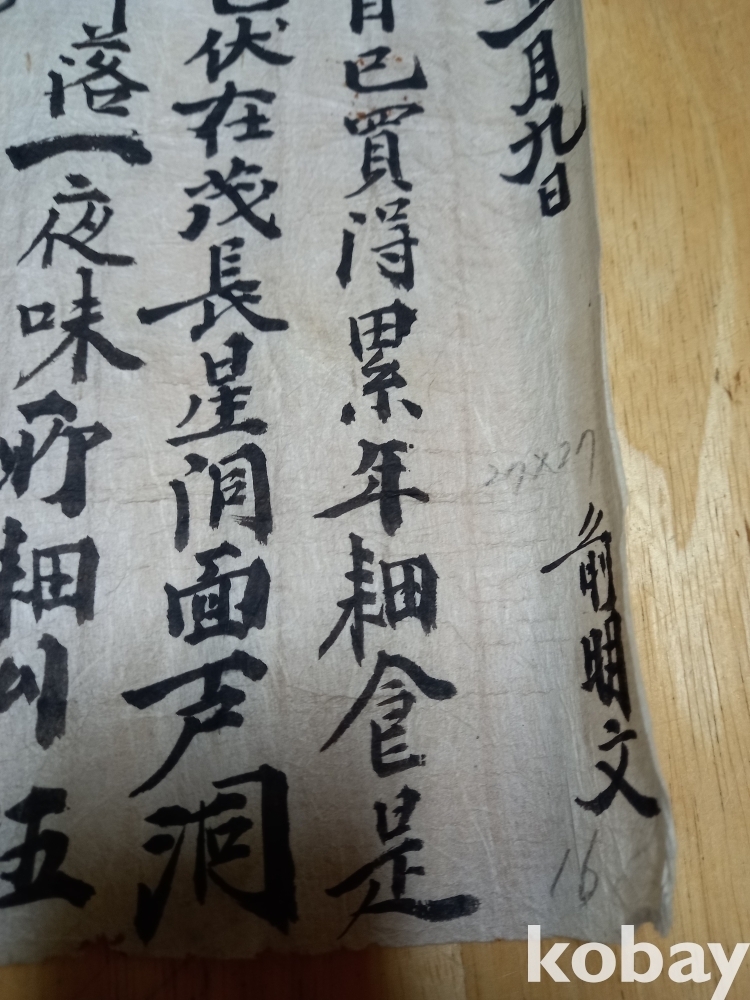 月九日 前明文
已買得累年耕食是
伏在茂長星洞面芦洞
落一夜味 耕 五
27×27
16
kobay